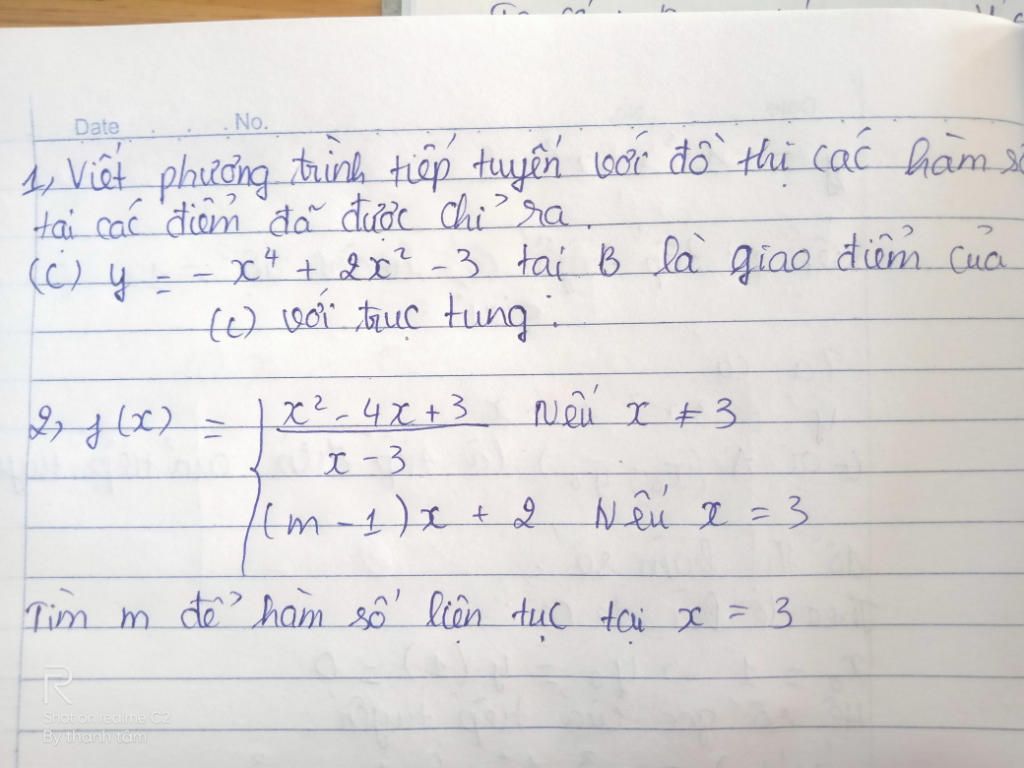 Date No.
1, Viết phương trình tiếp tuyến với đồ thị các hàm số
tại các điểm đã được chỉ ra.
(C) y = - x⁴ + 2x² - 3 tại B là giao điểm của
(C) với trục tung.
2, f(x) = { x² - 4x + 3 Nếu x ≠ 3
x - 3
(m - 1)x + 2 Nếu x = 3
Tìm m để hàm số liên tục tại x = 3
R
Shot on realme C2
By thanh tâm